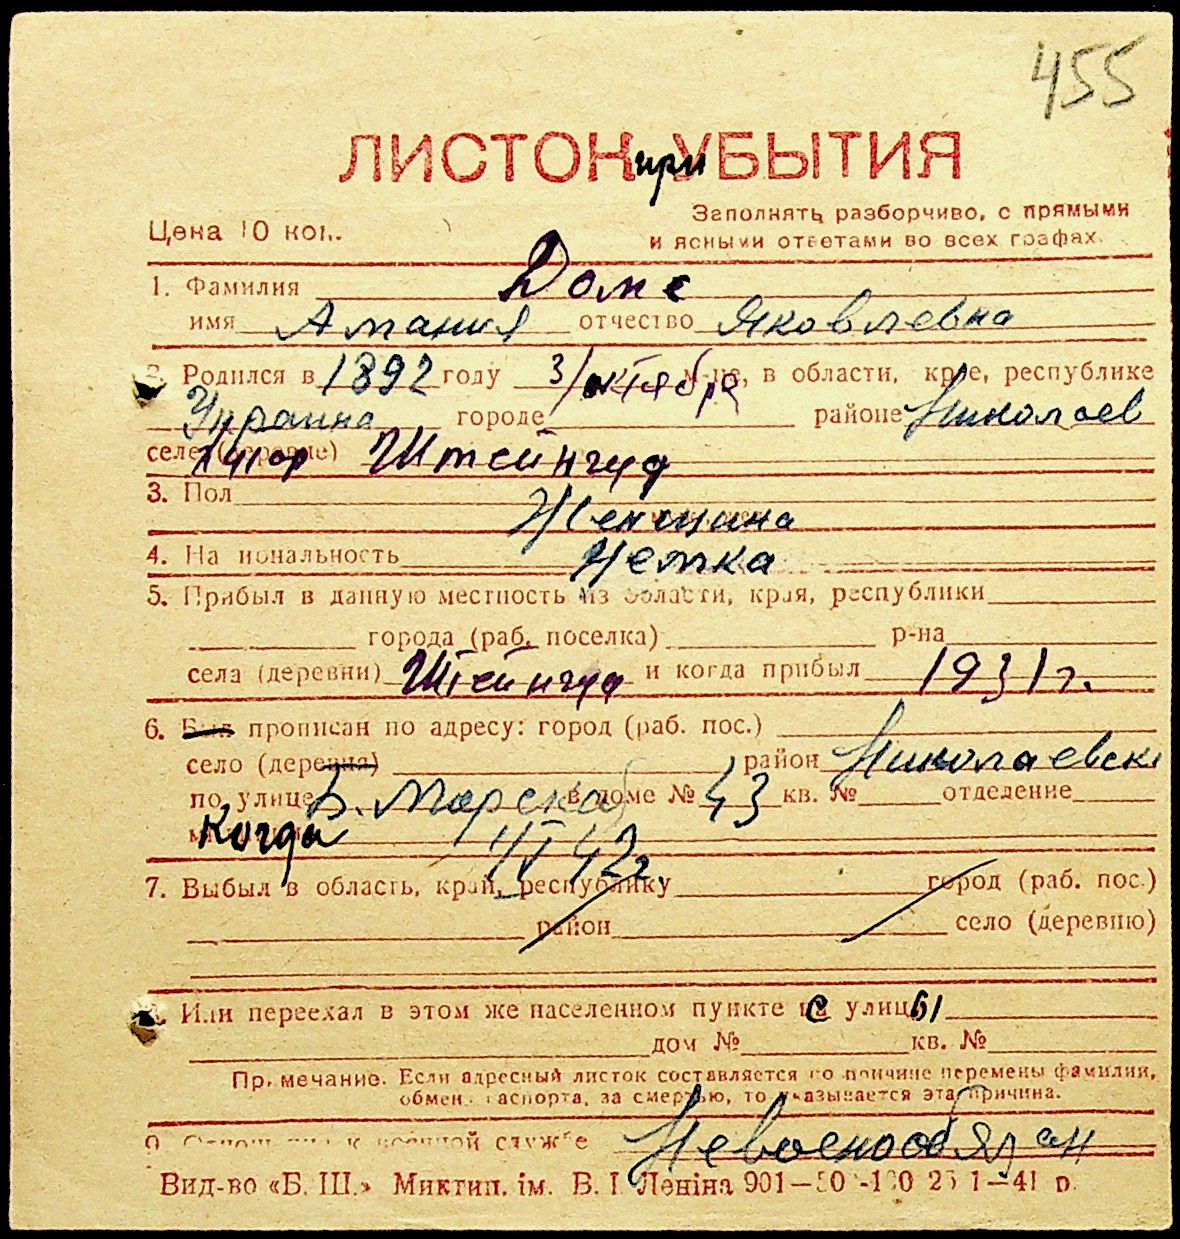 455
ЛИСТОК при УБЫТИЯ
Цена 10 коп.
Заполнять разборчиво, с прямыми
и ясными ответами во всех графах.
1. Фамилия Доме
имя Амания отчество Яковлевна
2. Родился в 1892 году 3/октября м-це, в области, крае, республике
Украина городе районе Николаев
селе (деревне) хутор Штейнгуд
3. Пол Женщина
4. Национальность Немка
5. Прибыл в данную местность из области, края, республики
города (раб. поселка) р-на
села (деревни) Штейнгуд и когда прибыл 1931 г.
6. Был прописан по адресу: город (раб. пос.)
село (деревня) район Николаевск
по улице Б. Морская в доме № 43 кв. № отделение
Когда IV 42 г.
7. Выбыл в область, край, республику город (раб. пос.)
район село (деревню)
Или переехал в этом же населенном пункте с улицы
дом № кв. №
Примечание. Если адресный листок составляется по причине перемены фамилии,
обмена паспорта, за смертью, то указывается эта причина.
9. Отношение к военной службе Невоенообязан
Вид-во «Б. Ш.» Миктип. ім. В. І. Леніна 901— 1—41 р.